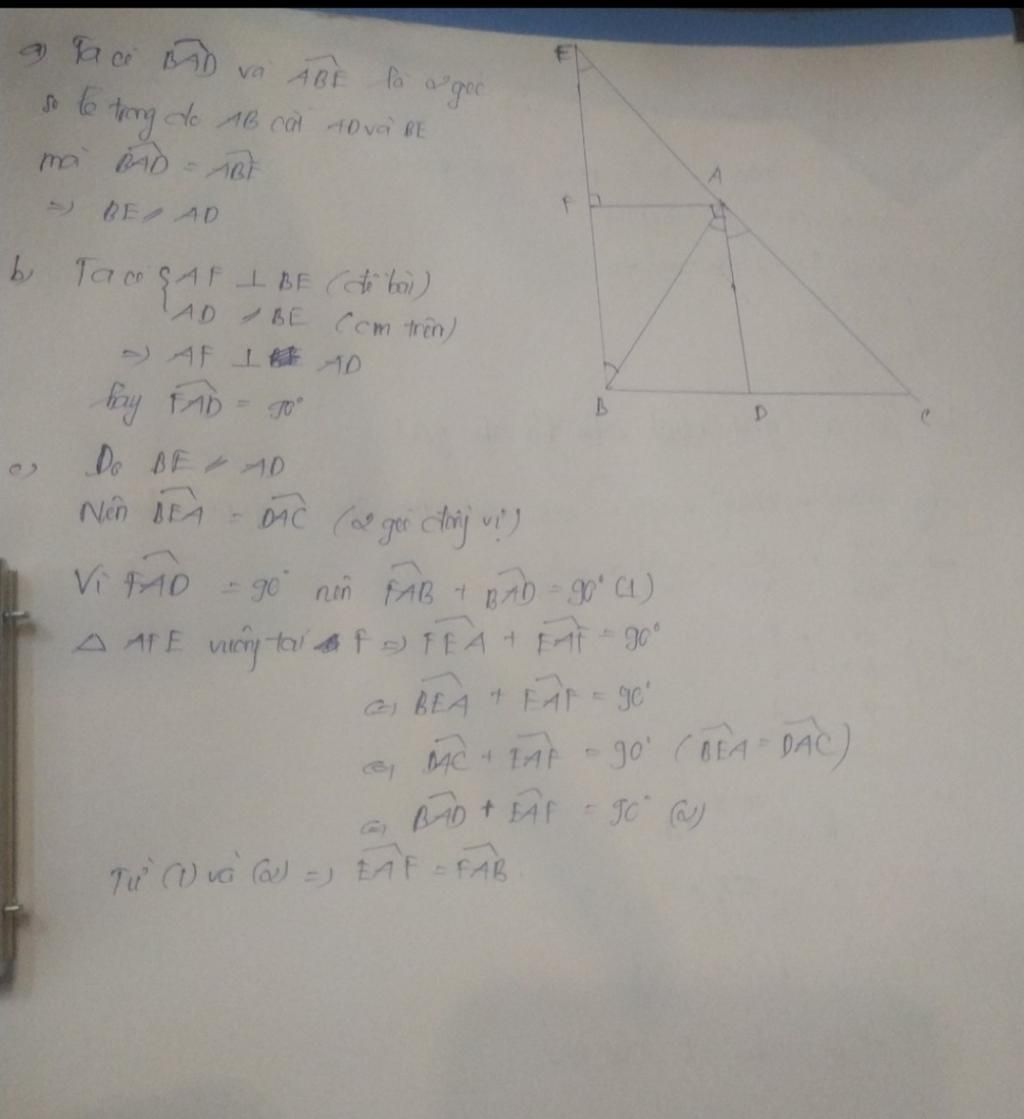 a) Ta có BAD và ABE là 2 góc
so le trong do AB cắt AD và BE
mà BAD = ABE
=> BE // AD
b, Ta có { AF ⊥ BE (đề bài)
AD // BE (cm trên)
=> AF ⊥ AD
hay FAD = 90°
c, Do BE // AD
Nên BEA = DAC (2 góc đồng vị)
Vì FAD = 90° nên FAB + BAD = 90° (1)
△ AFE vuông tại F => FEA + EAF = 90°
<=> BEA + EAF = 90°
<=> DAC + EAF = 90° (BEA = DAC)
<=> BAD + EAF = 90° (2)
Từ (1) và (2) => EAF = FAB.
E
A
F
B
D
C